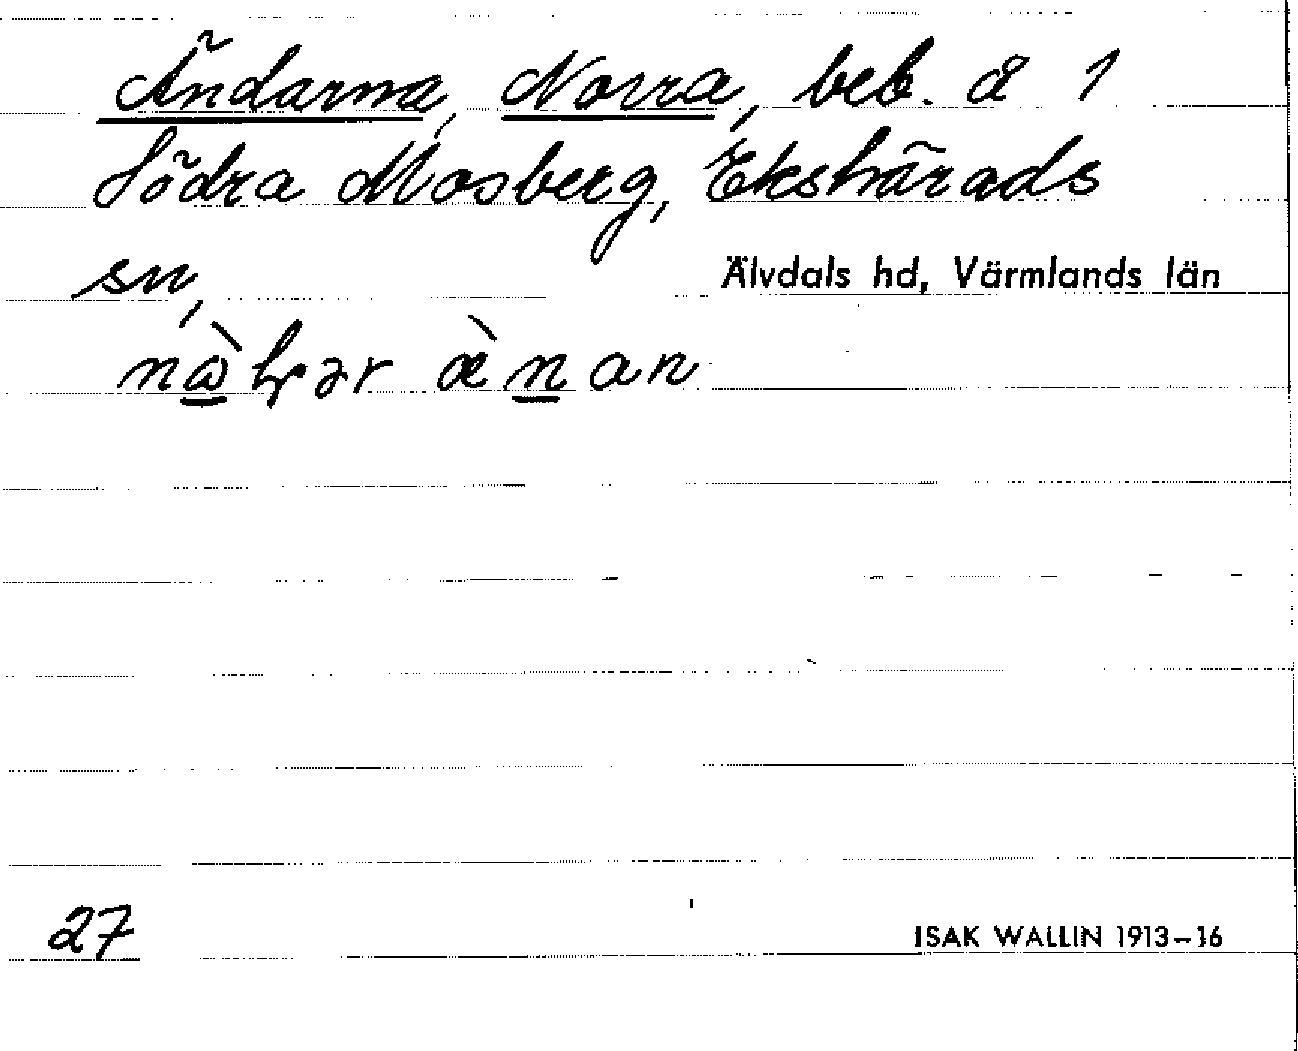 Ändarna, Norra, beb. å 1
Södra Mosberg, Ekshärads
sn,
Älvdals hd, Värmlands län
ænan
27
ISAK WALLIN 1913–16